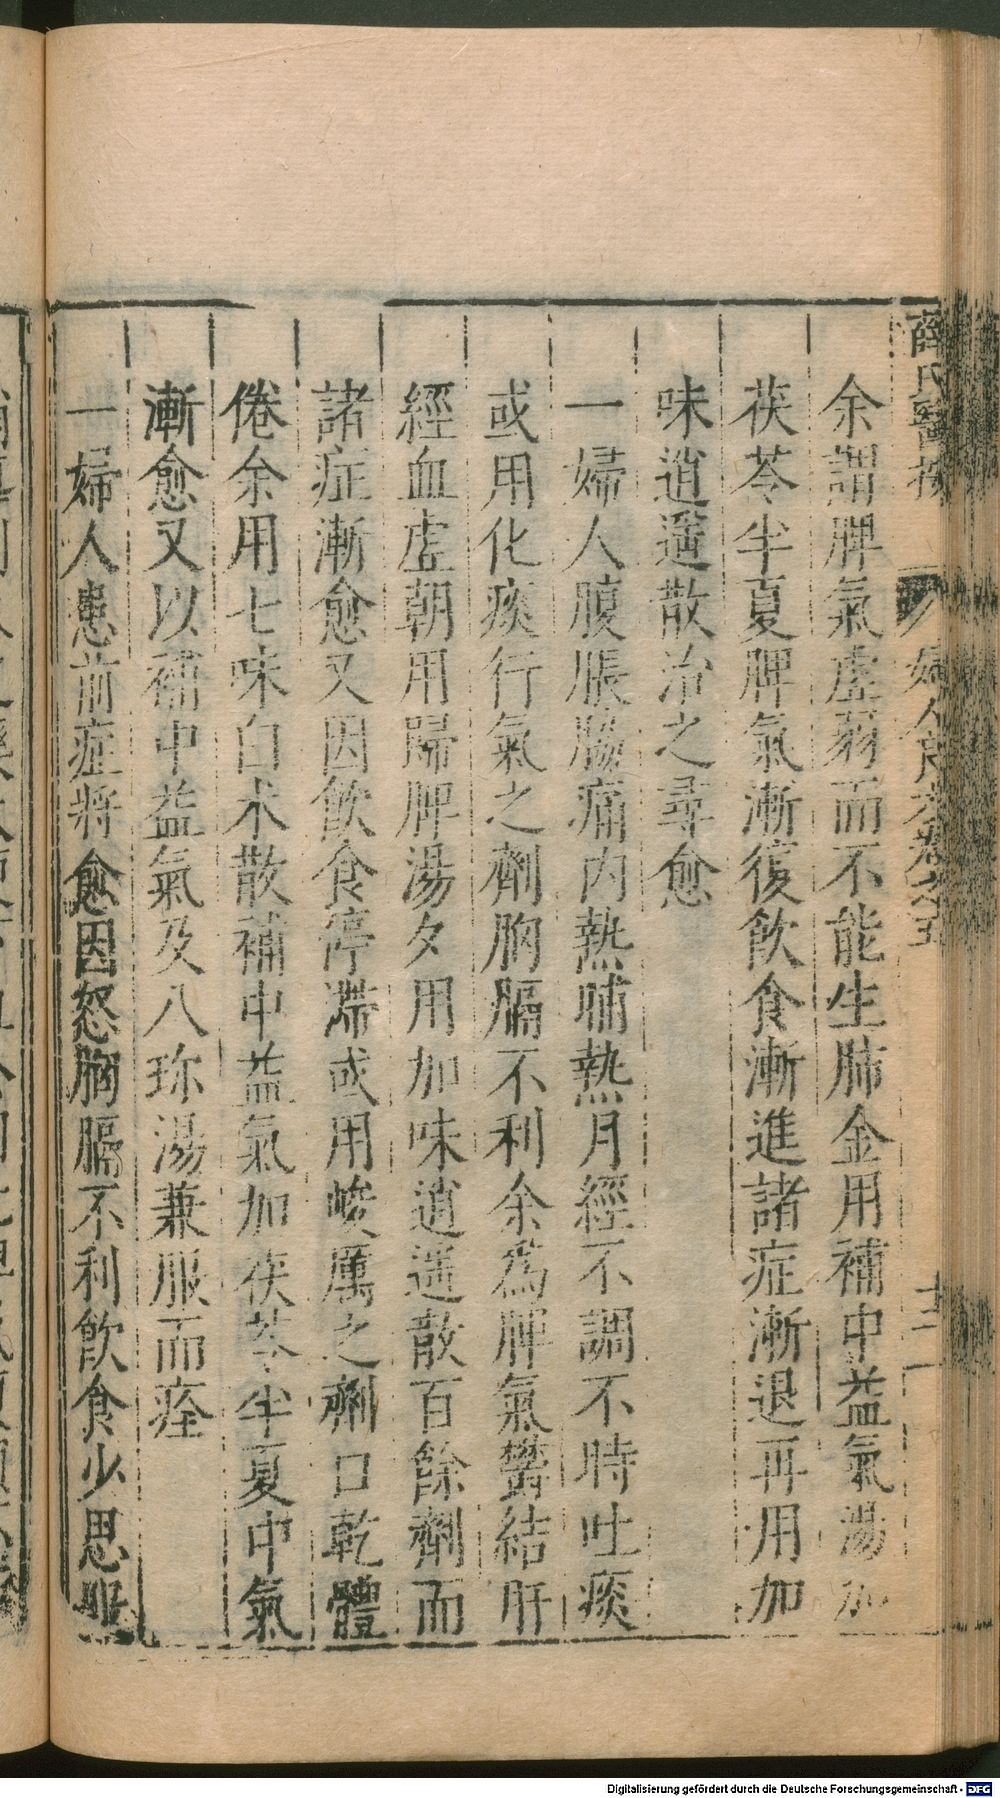 薛氏醫按
婦人良方卷之五
十二
余謂脾氣虛弱而不能生肺金用補中益氣湯加
茯苓半夏脾氣漸復飲食漸進諸症漸退再用加
味逍遙散治之尋愈
一婦人腹脹脇痛内熱晡熱月經不調不時吐痰
或用化痰行氣之劑胸膈不利余爲脾氣欝結肝
經血虛朝用歸脾湯夕用加味逍遥散百餘劑而
諸症漸愈又因飲食停滯或用峻厲之劑口乾體
倦余用七味白术散補中益氣加茯苓半夏中氣
漸愈又以補中益氣及八珍湯兼服而痊
一婦人患前症將愈因怒胸膈不利飲食少思服
Digitalisierung gefördert durch die Deutsche Forschungsgemeinschaft - DFG